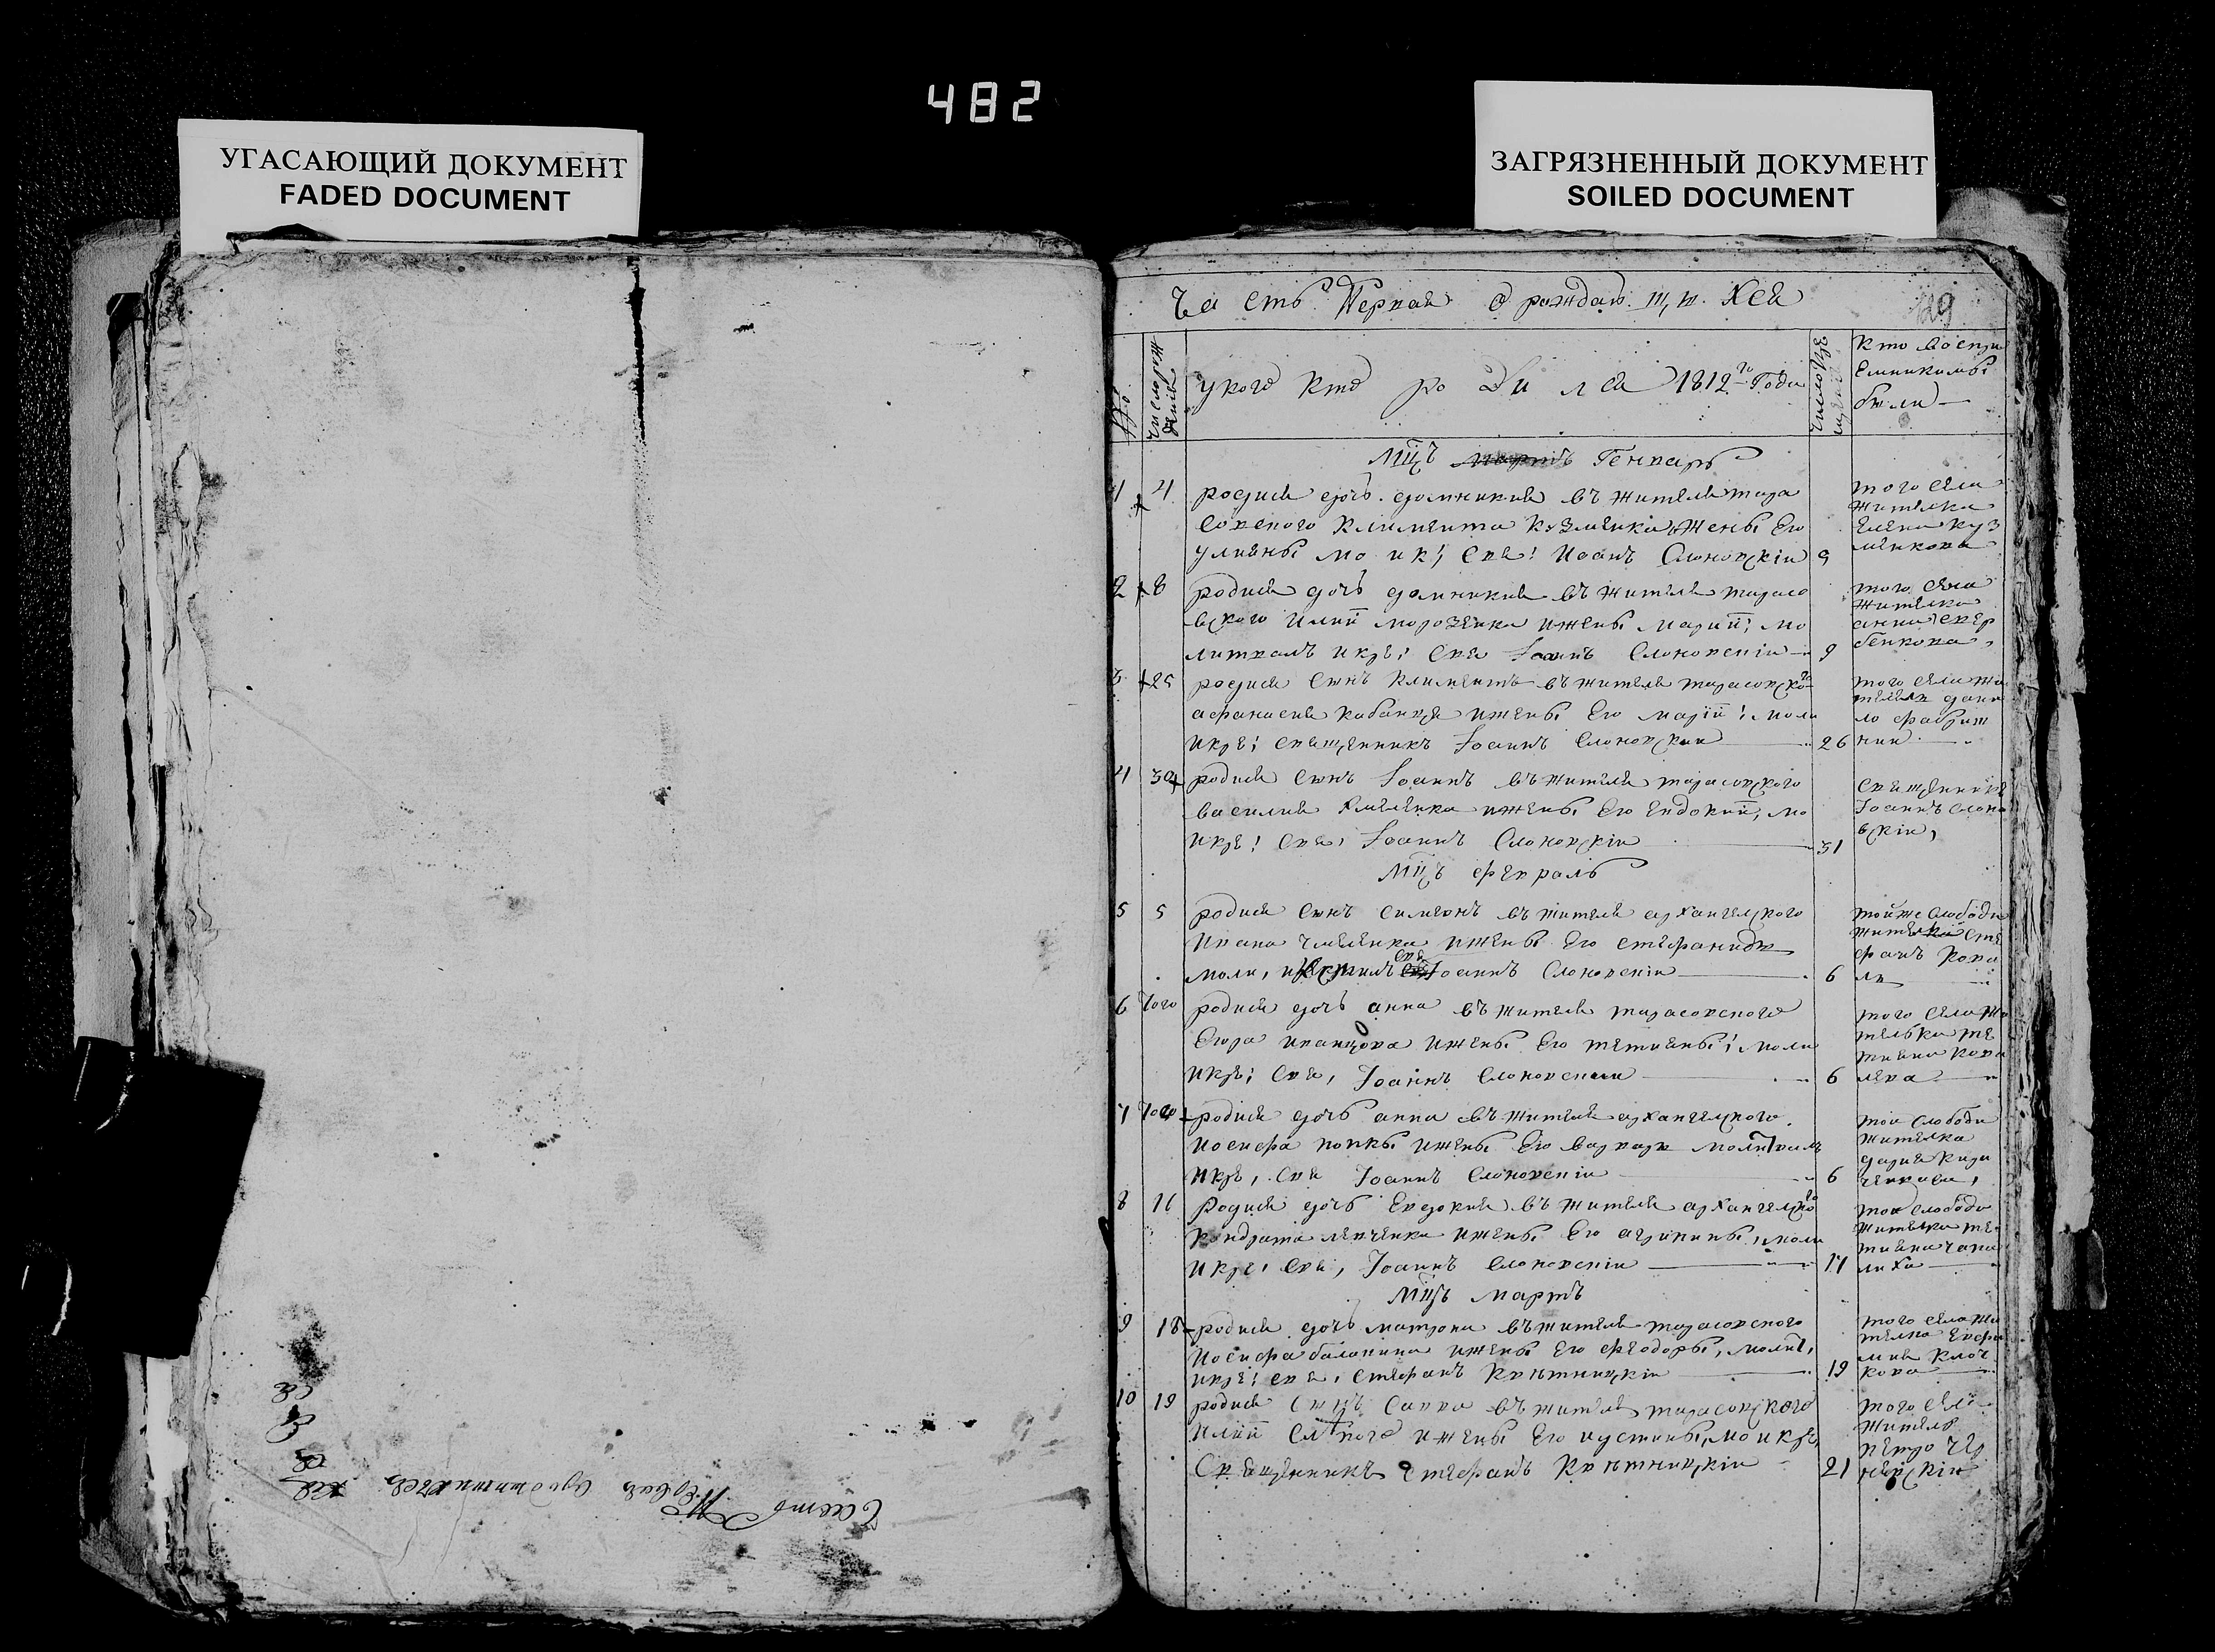 482
УГАСАЮЩИЙ ДОКУМЕНТ
FADED DOCUMENT
ЗАГРЯЗНЕННЫЙ ДОКУМЕНТ
SOILED DOCUMENT
Часть Первая О раждаю щихся
129
число рож дения
у кого кто родился 1812го Года
кто восприемниками были
Мцъ Генварь
1 4 родися дочь домникия въ жителя тара
совского Климента Кузменка и жены Его
улияны мо и кр: свя: Иоанъ Слоновскiи 9
того села
жителка
елена куз
менкова
2 8 родися дочь домникия въ жителя тарасо
вского Илии морозенка и жены Марии: мо
литвалъ и кре: Свя Iоаннъ Слоновскiи 9
того села
жителка
анна
3 25 родися сынъ Климентъ въ жителя тарасовского
афанасия кабанця и жены Его марiи: моли
и кре: священникъ Iоаннъ Слоновскии 26
того села жи
тель дани
ло
4 30 родися сынъ Iоаннъ въ жителя тарасовского
василия и жены Его Евдокии, мо
и кре: свя: Iоаннъ Слоновскiи 31
священникъ
Iоаннъ Слоно
вскiи,
Мцъ февраль
5 5 родися сынъ симеонъ въ жителя архангелского
Ивана и жены Его стефаниды
моли, и крестилъ свя Iоаннъ Слоновскiи 6
тойже слободы
житель сте
фанъ кова
ль
6 того родися дочь анна въ жителя тарасовского
Егора иванцова и жены Его тетияны: моли
и кре: свя, Iоаннъ Слоновскии 6
того села жи
телька те
тияна кова
лева
7 того родися дочь анна въ жителя архангелского
Иосифа попкы и жены Его варвары молитвилъ
и кре, свя Iоаннъ Слоновскiи 6
той слободы
жителка
дария кири
ченкова,
8 16 Родися дочь Евдокия въ жителя архангелского
Кондрата левченка и жены Его агрипины, моли
и кре: свя, Iоаннъ Слоновскiи 17
той слободы
жителка те
тияна чапа
лиха
Мцъ мартъ
9 18 родися дочь матрона въ жителя тарасовского
Иосифа балакина и жены Его феодоры, молит,
и кре: свя: стефанъ Квятницкiи 19
того села жи
телка Евфи
мия
кова
10 19 родися сынъ савва въ жителя тарасовского
Илии слепого и жены Его иустины, мо и кре,
Священникъ стефанъ Квятницкiи 21
того села
житель
петро чер
невскiи
Часть Первая